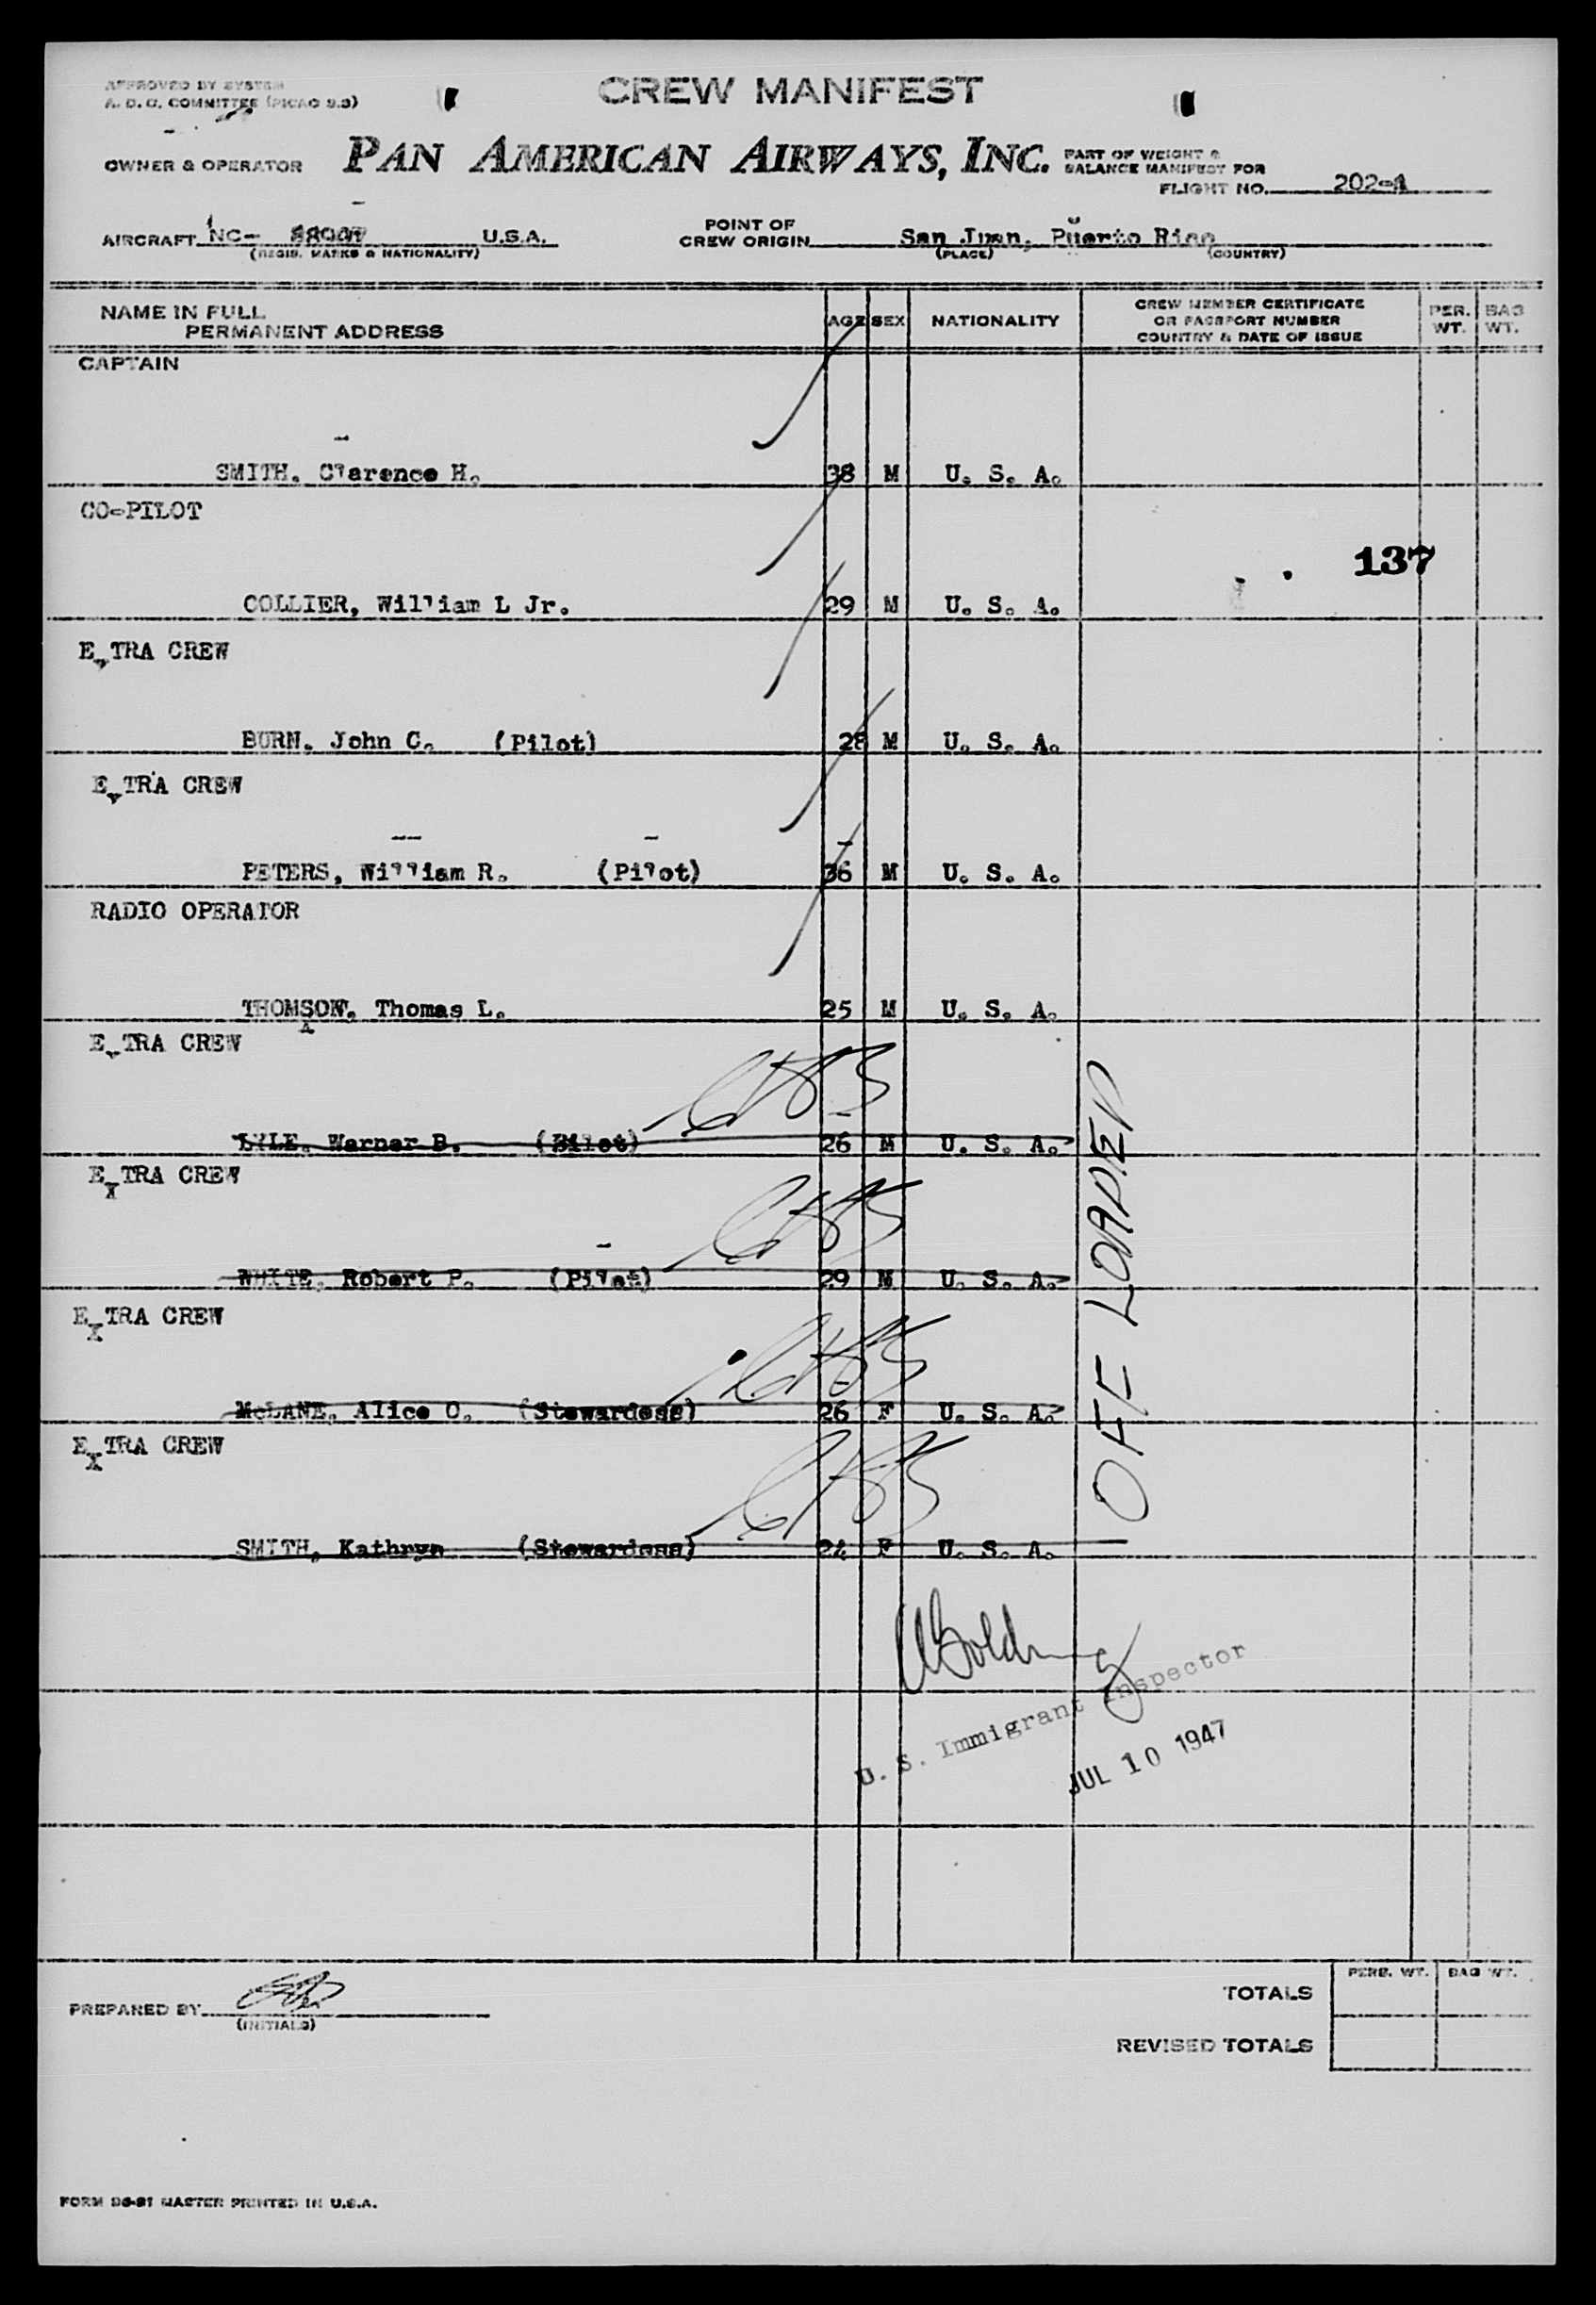 APPROVED BY SYSTEM
A. D. C. COMMITTEE (PICAO 9.3)
CREW MANIFEST
OWNER & OPERATOR PAN AMERICAN AIRWAYS, INC.
PART OF WEIGHT &
BALANCE MANIFEST FOR
FLIGHT NO. 202-A
AIRCRAFT NC- U.S.A.
(REGIS. MARKS & NATIONALITY)
POINT OF
CREW ORIGIN San Juan, Puerto Rico
(PLACE) (COUNTRY)
NAME IN FULL
PERMANENT ADDRESS
AGE SEX NATIONALITY
CREW MEMBER CERTIFICATE
OR PASSPORT NUMBER
COUNTRY & DATE OF ISSUE
PER. WT. BAG WT.
CAPTAIN
SMITH. Clarence H. 38 M U. S. A.
CO-PILOT
137
COLLIER, William L Jr. 29 M U. S. A.
EXTRA CREW
BURN. John C. (Pilot) 28 M U. S. A.
EXTRA CREW
PETERS, William R. (Pilot) 36 M U. S. A.
RADIO OPERATOR
THOMSON. Thomas L. 25 M U. S. A.
EXTRA CREW
LYLE. Warner B. (Pilot) 26 M U. S. A.
EXTRA CREW
WHITE, Robert P. (Pilot) 29 M U. S. A.
EXTRA CREW
McLANE, Alice O. (Stewardess) 26 F U. S. A.
EXTRA CREW
SMITH, Kathryn (Stewardess) 24 F U. S. A.
OFF LOADED
U. S. Immigrant Inspector
JUL 10 1947
PREPARED BY
(INITIALS)
PERS. WT. BAG WT.
TOTALS
REVISED TOTALS
FORM DS-81 MASTER PRINTED IN U.S.A.